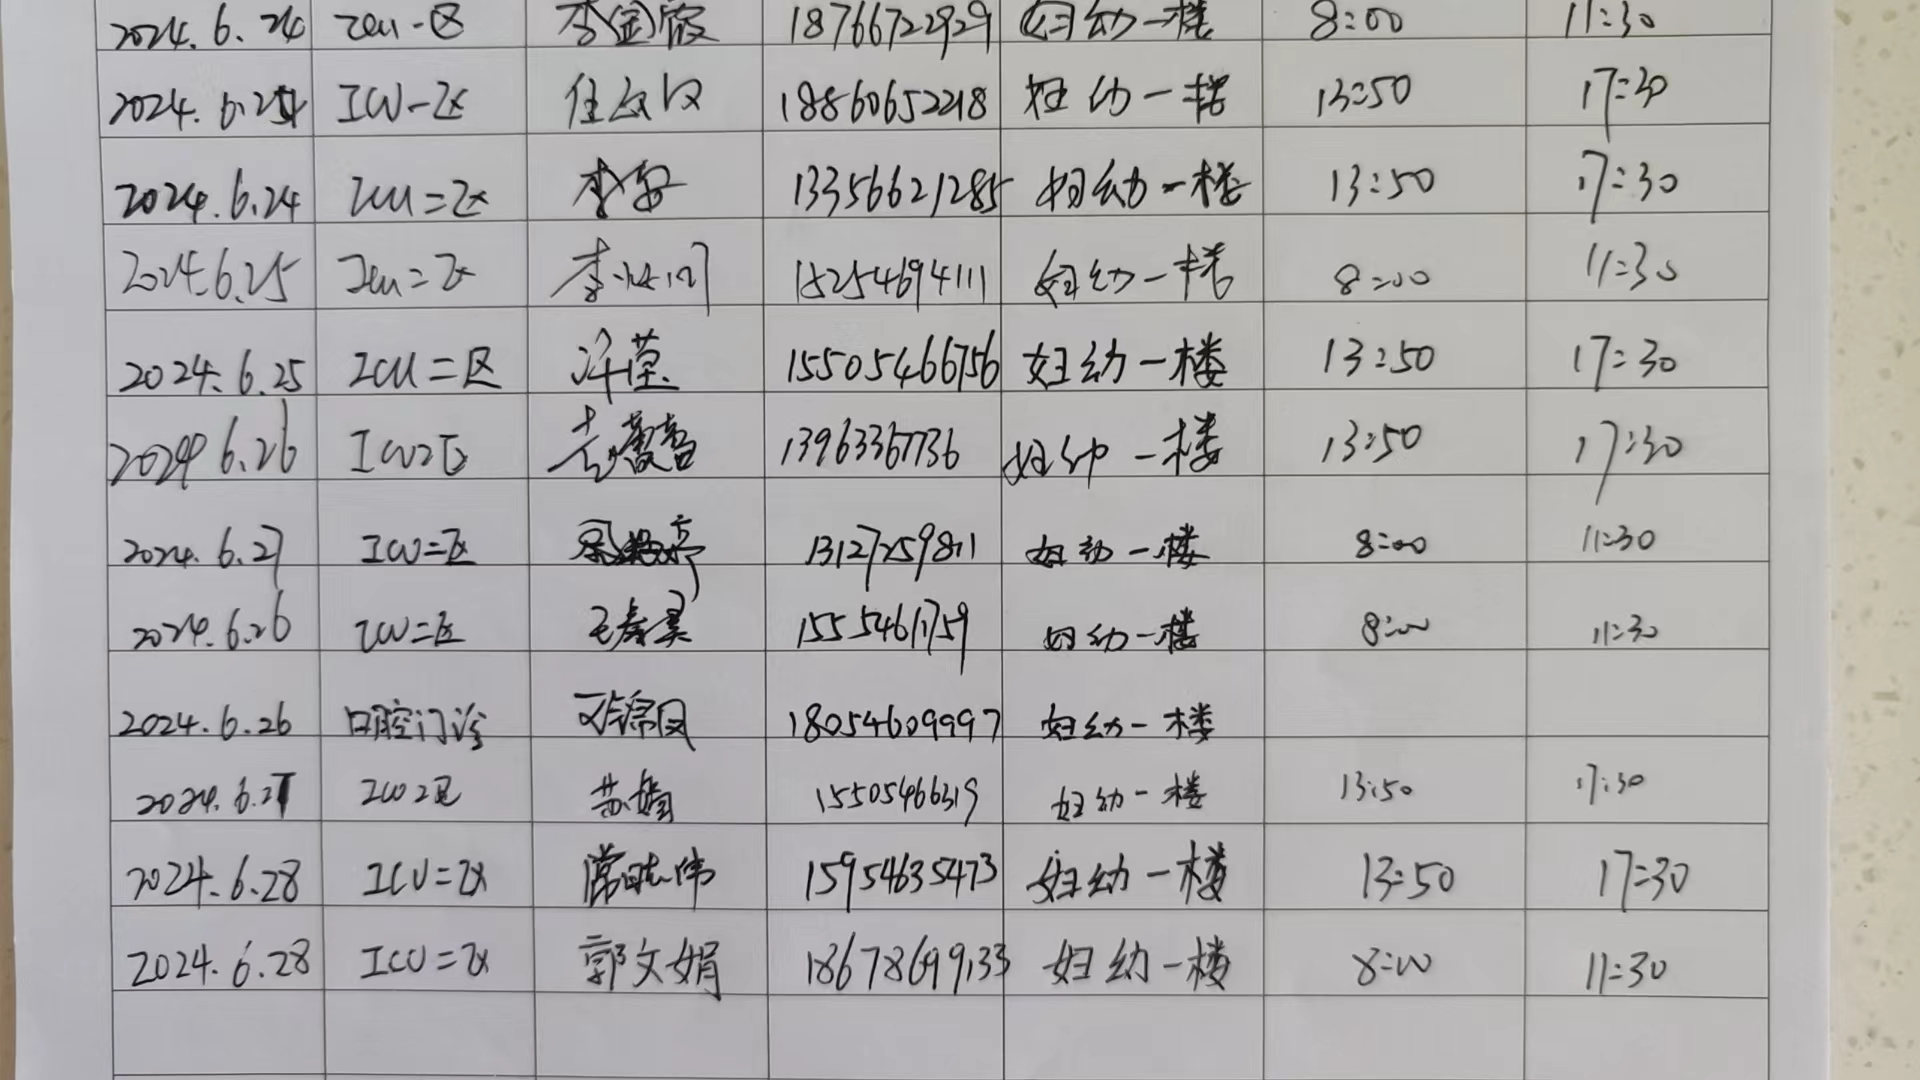 2024.6.24 ICU一区 李金霞 18766722929 妇幼一楼 8:00 11:30
2024.6.24 ICU一区 任 18860652218 妇幼一楼 13:50 17:30
2024.6.24 ICU二区 李安 13356621285 妇幼一楼 13:50 17:30
2024.6.25 ICU二区 李 18254694111 妇幼一楼 8:00 11:30
2024.6.25 ICU二区 许莹 15505466756 妇幼一楼 13:50 17:30
2024.6.26 ICU2区 13963367736 妇幼一楼 13:50 17:30
2024.6.27 ICU二区 13127259811 妇幼一楼 8:00 11:30
2024.6.26 ICU二区 毛春昊 15554611759 妇幼一楼 8:00 11:30
2024.6.26 口腔门诊 18054609997 妇幼一楼
2024.6.27 ICU2区 苏娟 15505466319 妇幼一楼 13:50 17:30
2024.6.28 ICU二区 常晓伟 15954635473 妇幼一楼 13:50 17:30
2024.6.28 ICU二区 郭文娟 18678699133 妇幼一楼 8:00 11:30